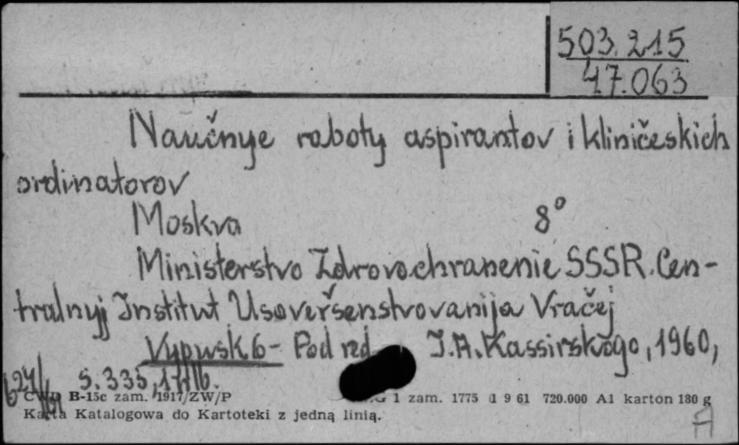 503.215
47.063
Naučnye raboty aspirantov i kliničeskich
ordinatorov
Moskva 8°
Ministerstvo Zdrovochranenie SSSR. Cen-
tralnyj Institut Usoveršenstvovanija Vračej
Vypusk 6 - Pod red. I.A. Kassirskogo, 1960,
S. 335,
CWD B-15c zam. 1917/ZW/P 1 zam. 1775 d 9 61 720.000 A1 karton 180 g
Karta Katalogowa do Kartoteki z jedną linią.
A